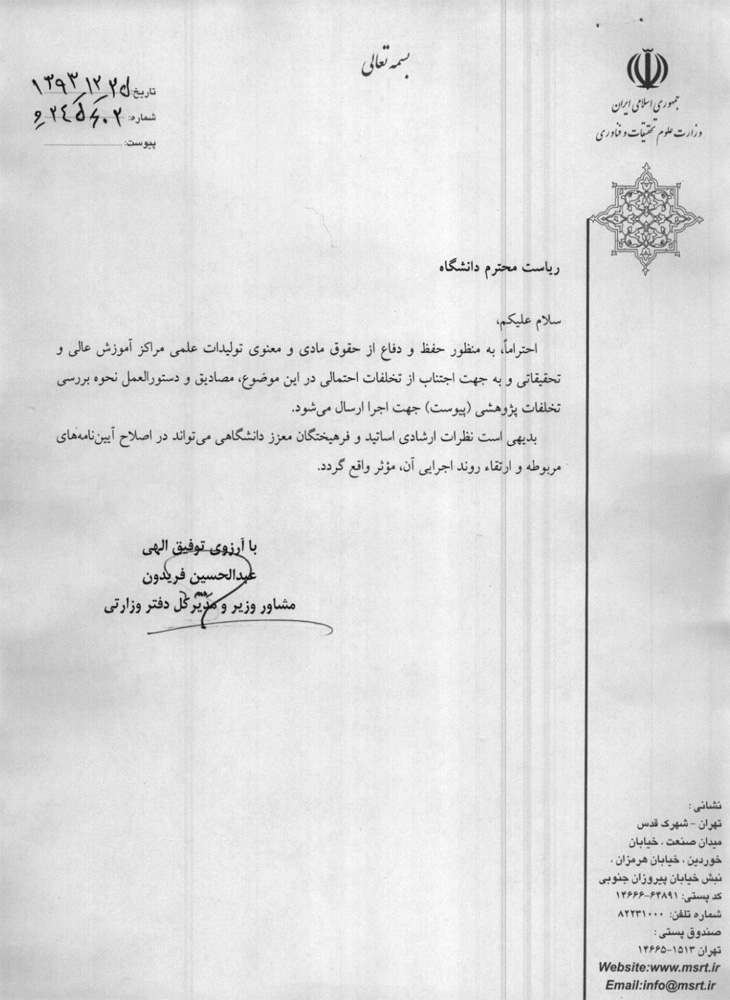 بسمه تعالی
جمهوری اسلامی ایران
وزارت علوم تحقیقات و فناوری
تاریخ: ۱۳۹۳/۱۲/۲۵
شماره:
پیوست:
ریاست محترم دانشگاه
سلام علیکم،
احتراماً، به منظور حفظ و دفاع از حقوق مادی و معنوی تولیدات علمی مراکز آموزش عالی و
تحقیقاتی و به جهت اجتناب از تخلفات احتمالی در این موضوع، مصادیق و دستورالعمل نحوه بررسی
تخلفات پژوهشی (پیوست) جهت اجرا ارسال می‌شود.
بدیهی است نظرات ارشادی اساتید و فرهیختگان معزز دانشگاهی می‌تواند در اصلاح آیین‌نامه‌های
مربوطه و ارتقاء روند اجرایی آن، مؤثر واقع گردد.
با آرزوی توفیق الهی
عبدالحسین فریدون
مشاور وزیر و مدیرکل دفتر وزارتی
نشانی :
تهران - شهرک قدس
میدان صنعت ، خیابان
خوردین ، خیابان هرمزان ،
نبش خیابان پیروزان جنوبی
کد پستی: ۶۴۸۹۱-۱۴۶۶۶
شماره تلفن: ۸۲۲۳۱۰۰۰
صندوق پستی :
تهران ۱۵۱۳-۱۴۶۶۵
Website:www.msrt.ir
Email:info@msrt.ir